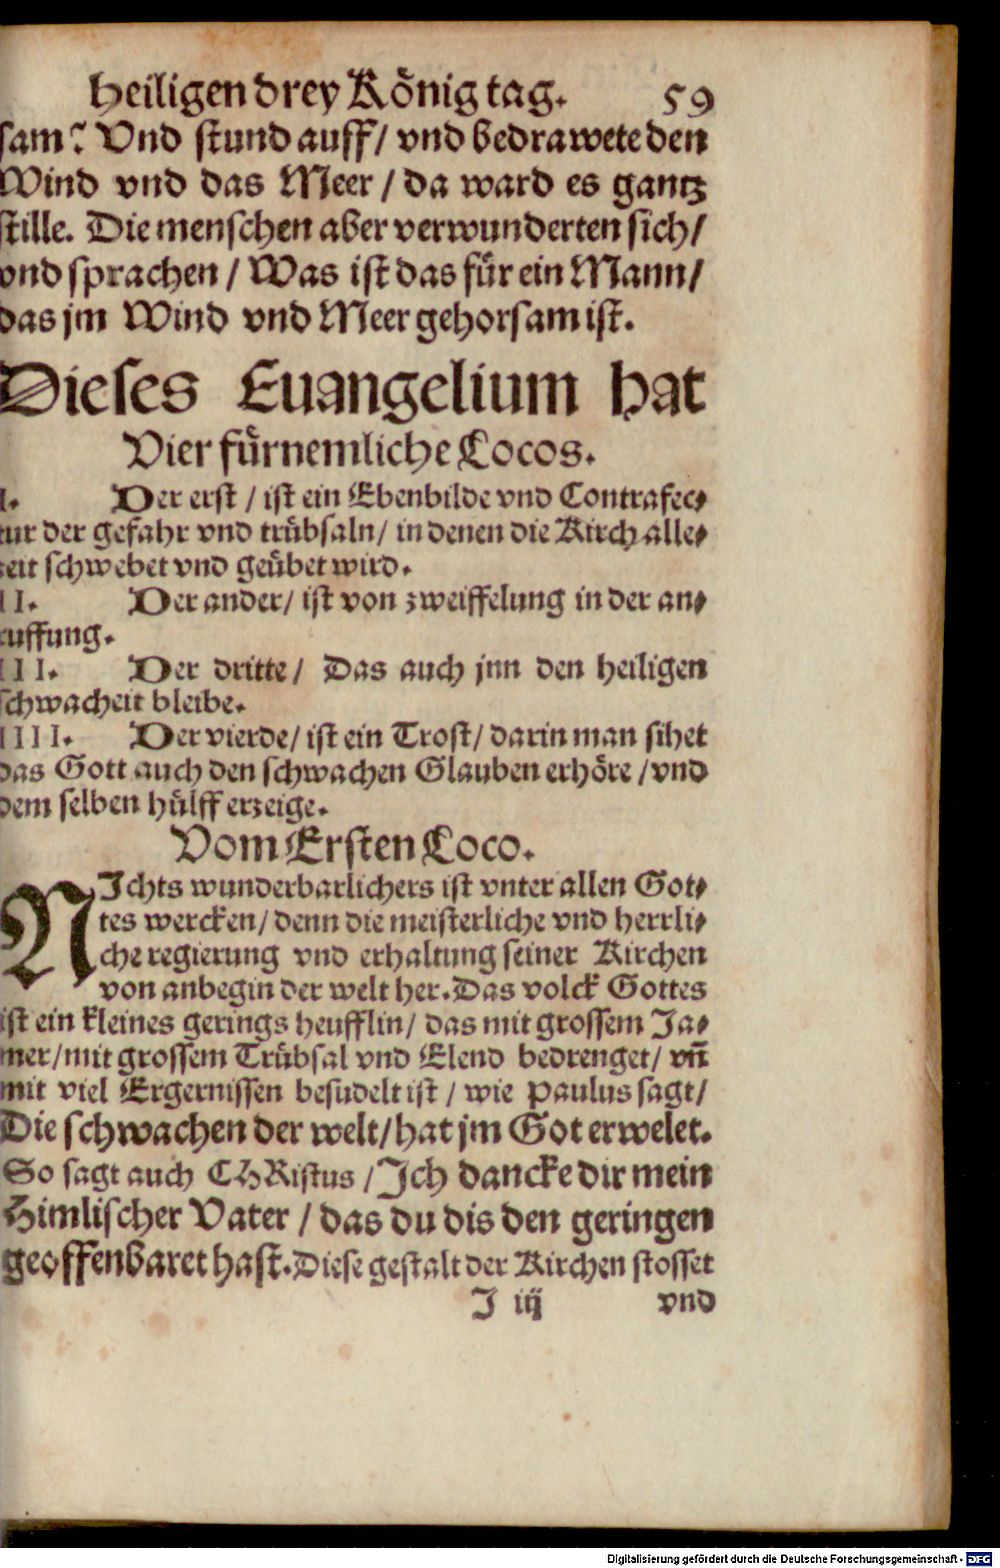 Heiligen drey König tag. 59
sam? Vnd stund auff/ vnd bedrawete den
Wind vnd das Meer / da ward es gantz
stille. Die menschen aber verwunderten sich/
vnd sprachen / Was ist das für ein Mann/
das jm Wind vnd Meer gehorsam ist.
Dieses Euangelium hat
Vier fürnemliche Locos.
I. Der erst / ist ein Ebenbilde vnd Contrafec-
tur der gefahr vnd trübsaln/ in denen die Kirch alle-
zeit schwebet vnd geübet wird.
II. Der ander/ ist von zweiffelung in der an-
ruffung.
III. Der dritte / Das auch jnn den heiligen
schwacheit bleibe.
IIII. Der vierde/ ist ein Trost/ darin man sihet
das Gott auch den schwachen Glauben erhöre / vnd
dem selben hülff erzeige.
Vom Ersten Loco.
NIchts wunderbarlichers ist vnter allen Got-
tes wercken/ denn die meisterliche vnd herrli-
che regierung vnd erhaltung seiner Kirchen
von anbegin der welt her. Das volck Gottes
ist ein kleines gerings heufflin/ das mit grossem Ja-
mer/ mit grossem Trübsal vnd Elend bedrenget/ vñ
mit viel Ergernissen besudelt ist / wie Paulus sagt/
Die schwachen der welt/ hat jm Got erwelet.
So sagt auch CHRistus / Ich dancke dir mein
Himlischer Vater / das du dis den geringen
geoffenbaret hast. Diese gestalt der Kirchen stosset
J iij vnd
Digitalisierung gefördert durch die Deutsche Forschungsgemeinschaft - DFG